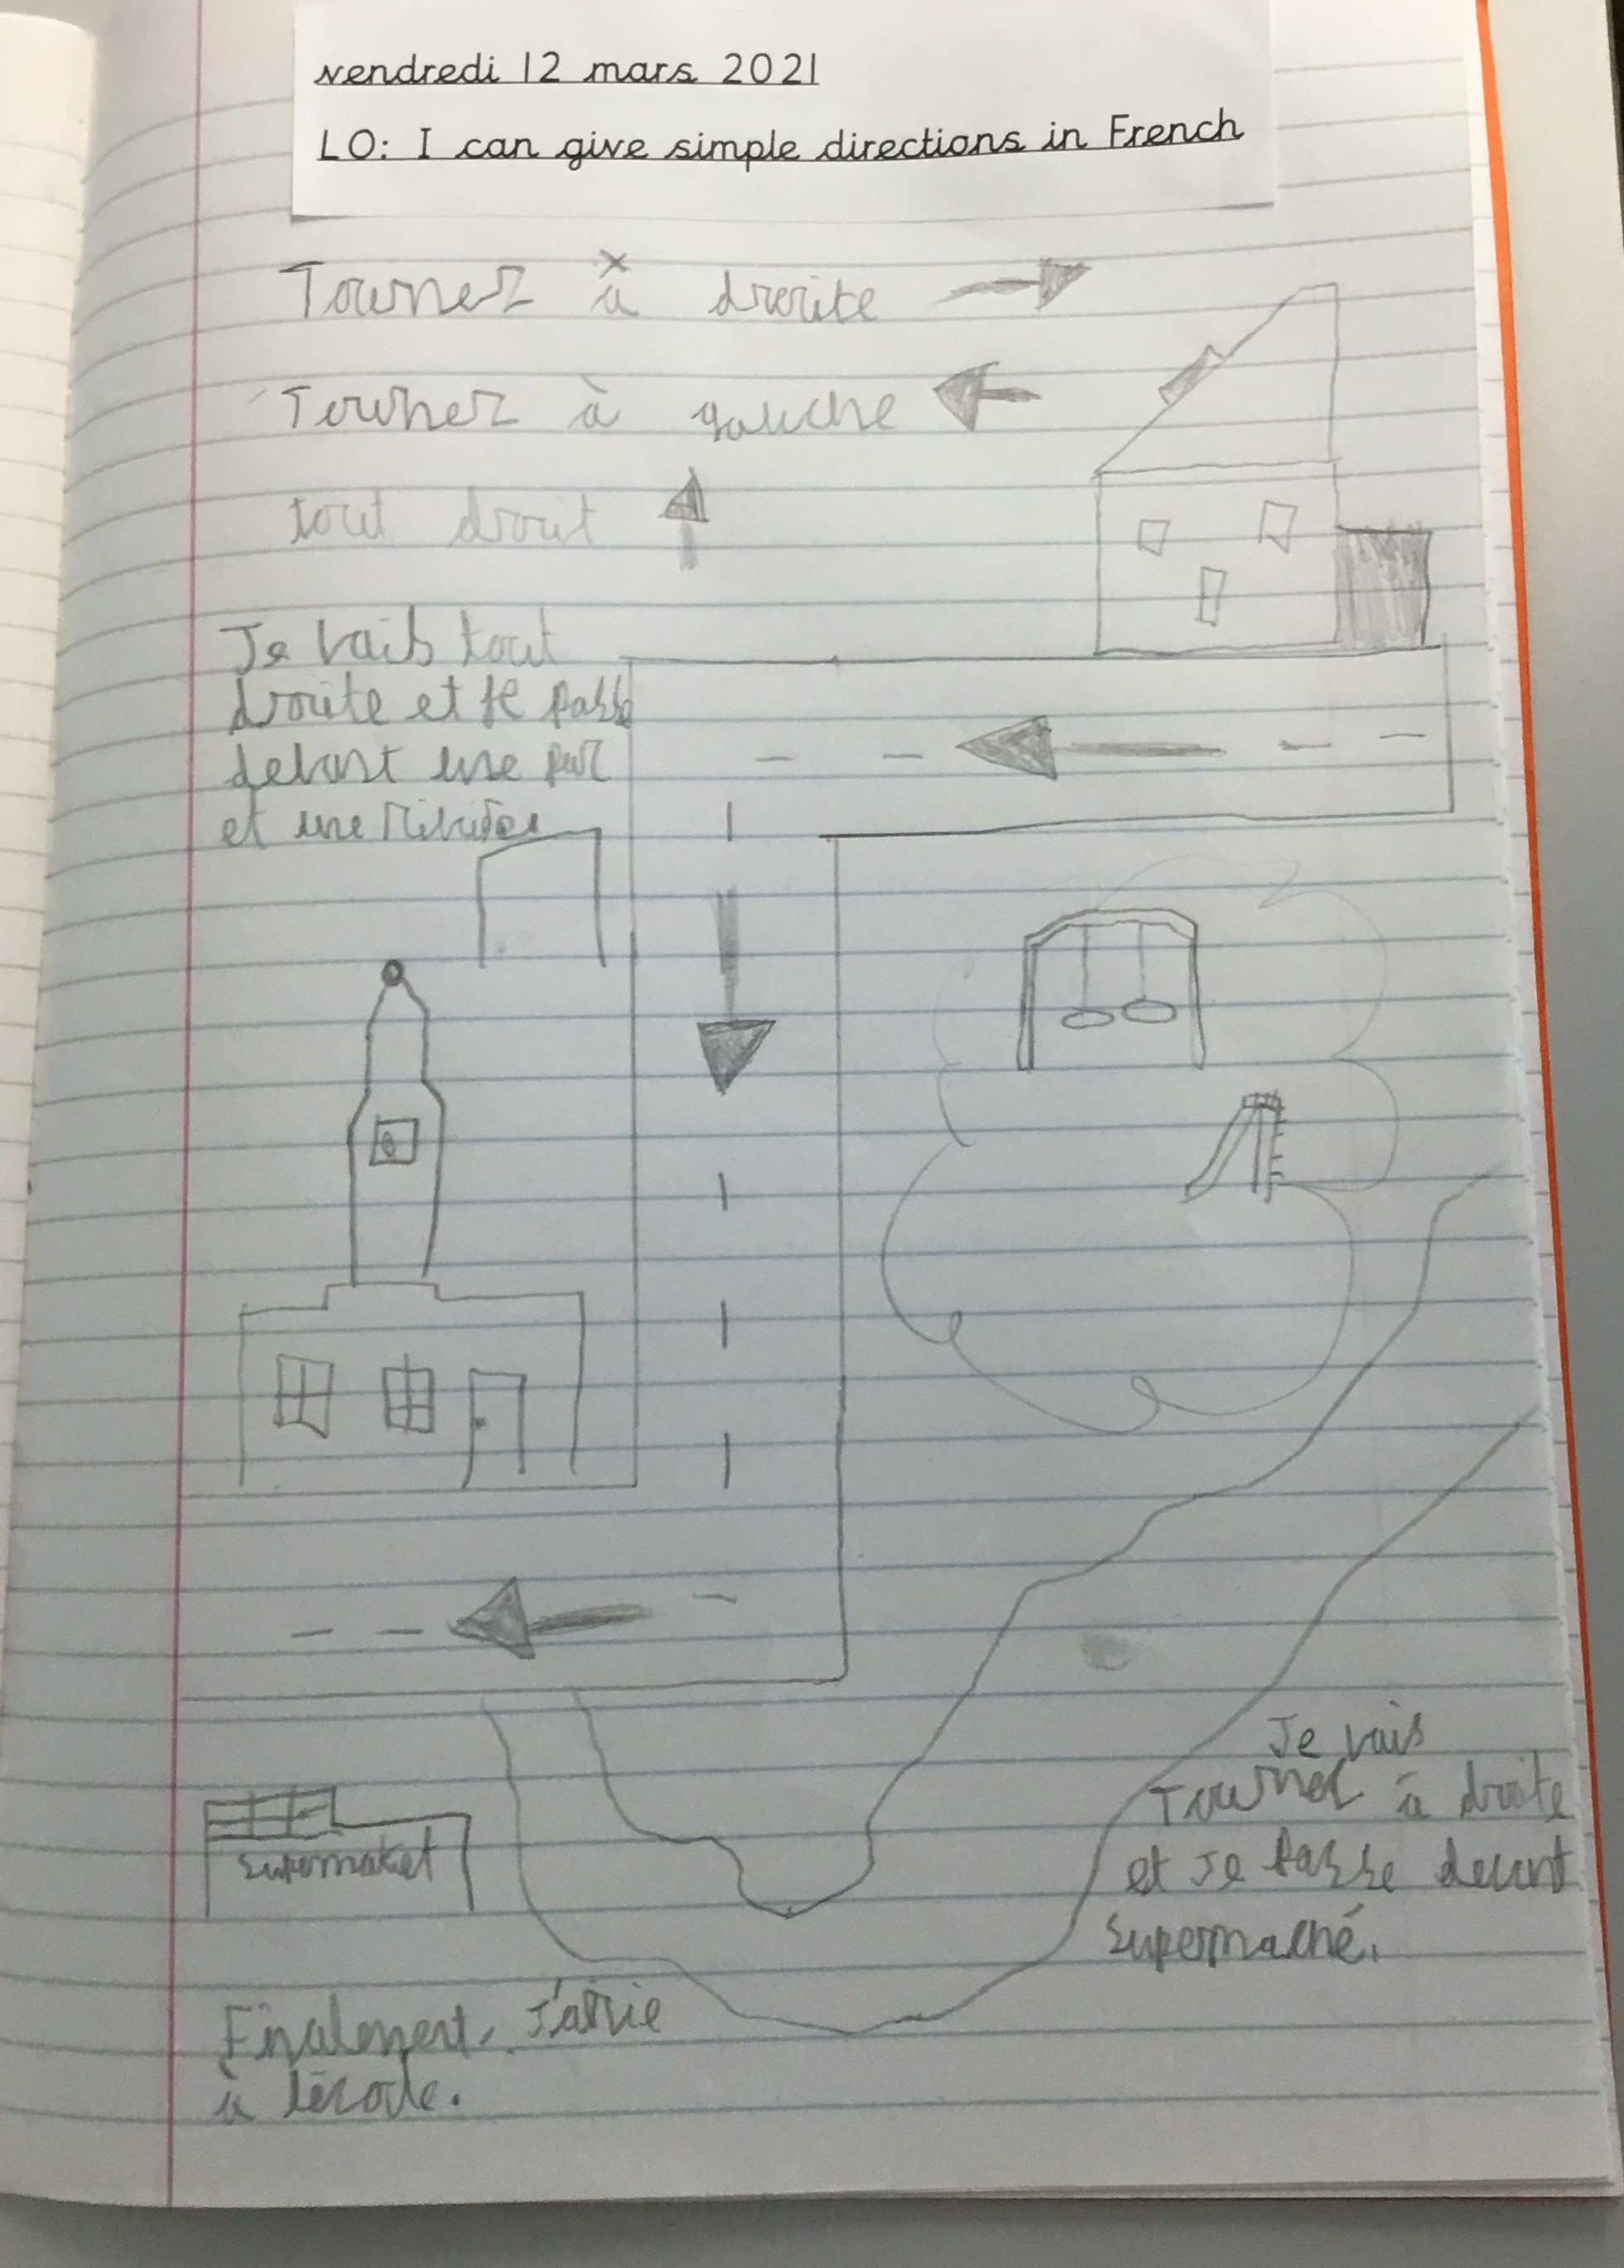 vendredi 12 mars 2021
LO: I can give simple directions in French
Tournez à droite
Tournez à gauche
tout droit
Je vais tout
droite et je passe
devant une parc
et une
supermaket
Je vais
Tournez à droite
et Je passe devant
supermaché.
Finalement, J'arrie
à l'école.